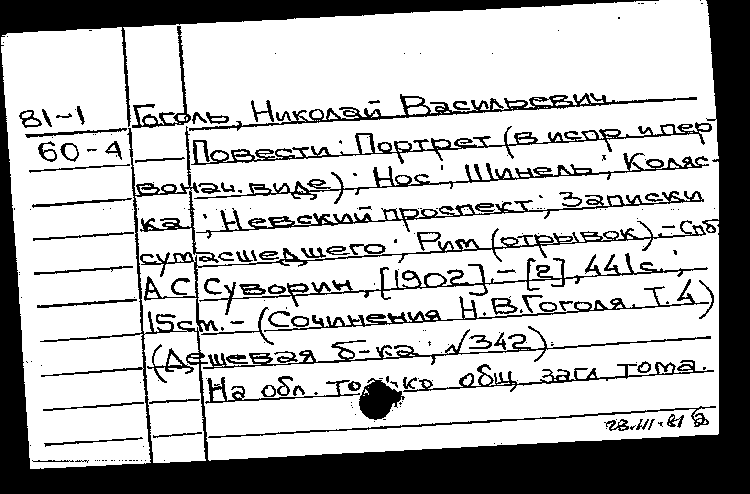 81-1 Гоголь, Николай Васильевич.
60-4 Повести: Портрет (в испр. и пер
вонач. виде); Нос; Шинель; Коляс-
ка; Невский проспект; Записки
сумасшедшего; Рим (отрывок).-Спб
А С Суворин, [1902].- [2], 441с.;
15см.- (Сочинения Н.В.Гоголя. Т.4)
(Дешевая б-ка; №342).
На обл. только общ. загл. тома.
23.III.81